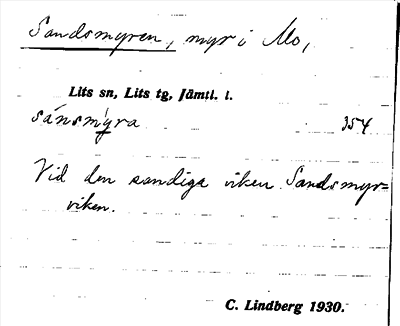 Sandsmyren, myr i Mo,
Lits sn, Lits tg, Jämtl. l.
sánsmỳ̨ra 354
Vid den sandiga viken Sandsmyr=
viken.
C. Lindberg 1930.